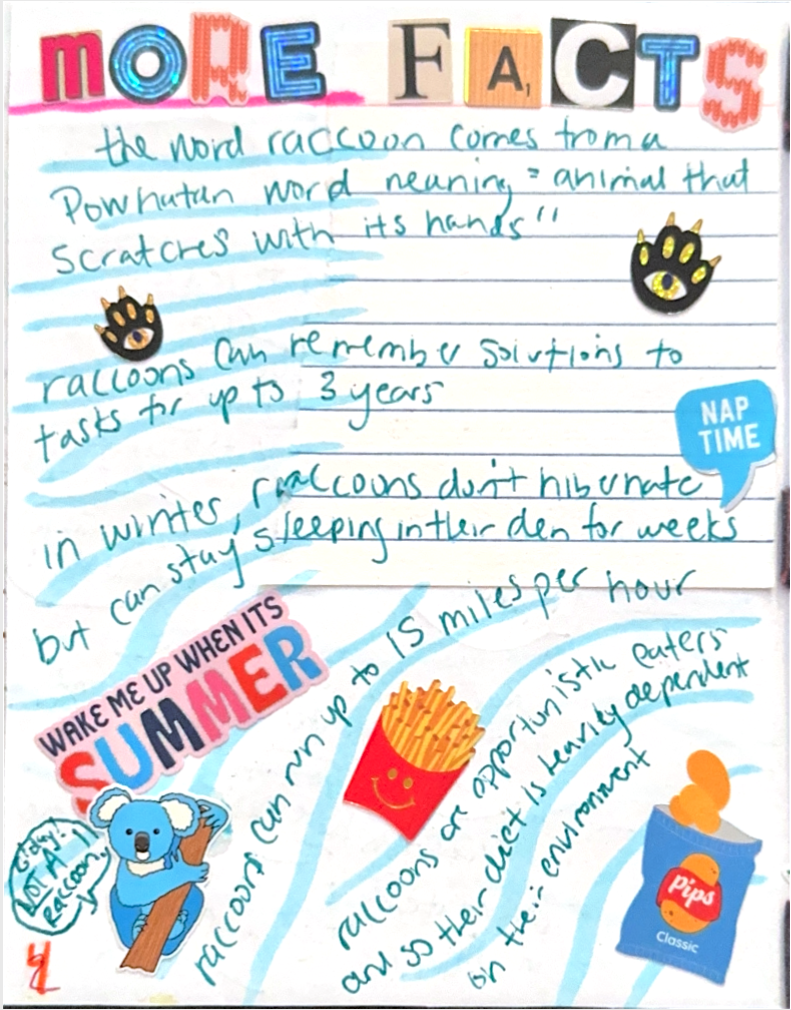 MORE FACTS
the word raccoon comes from a
Powhatan word meaning "animal that
scratches with its hands"
raccoons can remember solutions to
tasks for up to 3 years
NAP
TIME
in winter, raccoons don't hibernate
but can stay sleeping in their den for weeks
WAKE ME UP WHEN ITS
SUMMER
raccoons can run up to 15 miles per hour
raccoons are opportunistic eaters
and so their diet is heavily dependent
on their environment
NOT A
raccoon
pips
Classic